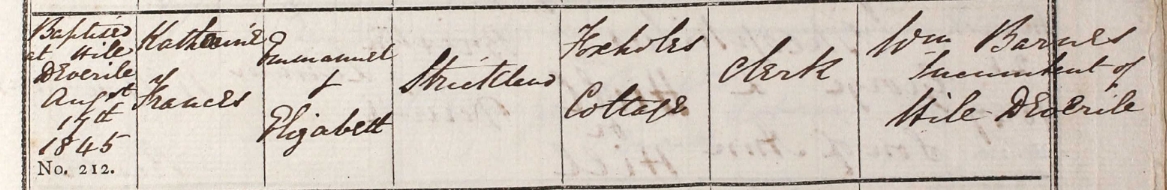 Baptised
at Hile
DEverile
Augst
17th
1845
No. 212.
Katherine
&
Frances
Emmanuel
&
Elizabeth
Strickland
Foxholes
Cottage
Clerk
Wm Barnes
Incumbent of
Hile DEverile